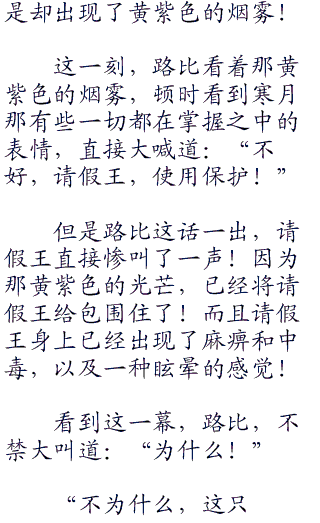 是却出现了黄紫色的烟雾！
这一刻，路比看着那黄
紫色的烟雾，顿时看到寒月
那有些一切都在掌握之中的
表情，直接大喊道：“不
好，请假王，使用保护！”
但是路比这话一出，请
假王直接惨叫了一声！因为
那黄紫色的光芒，已经将请
假王给包围住了！而且请假
王身上已经出现了麻痹和中
毒，以及一种眩晕的感觉！
看到这一幕，路比，不
禁大叫道：“为什么！”
“不为什么，这只